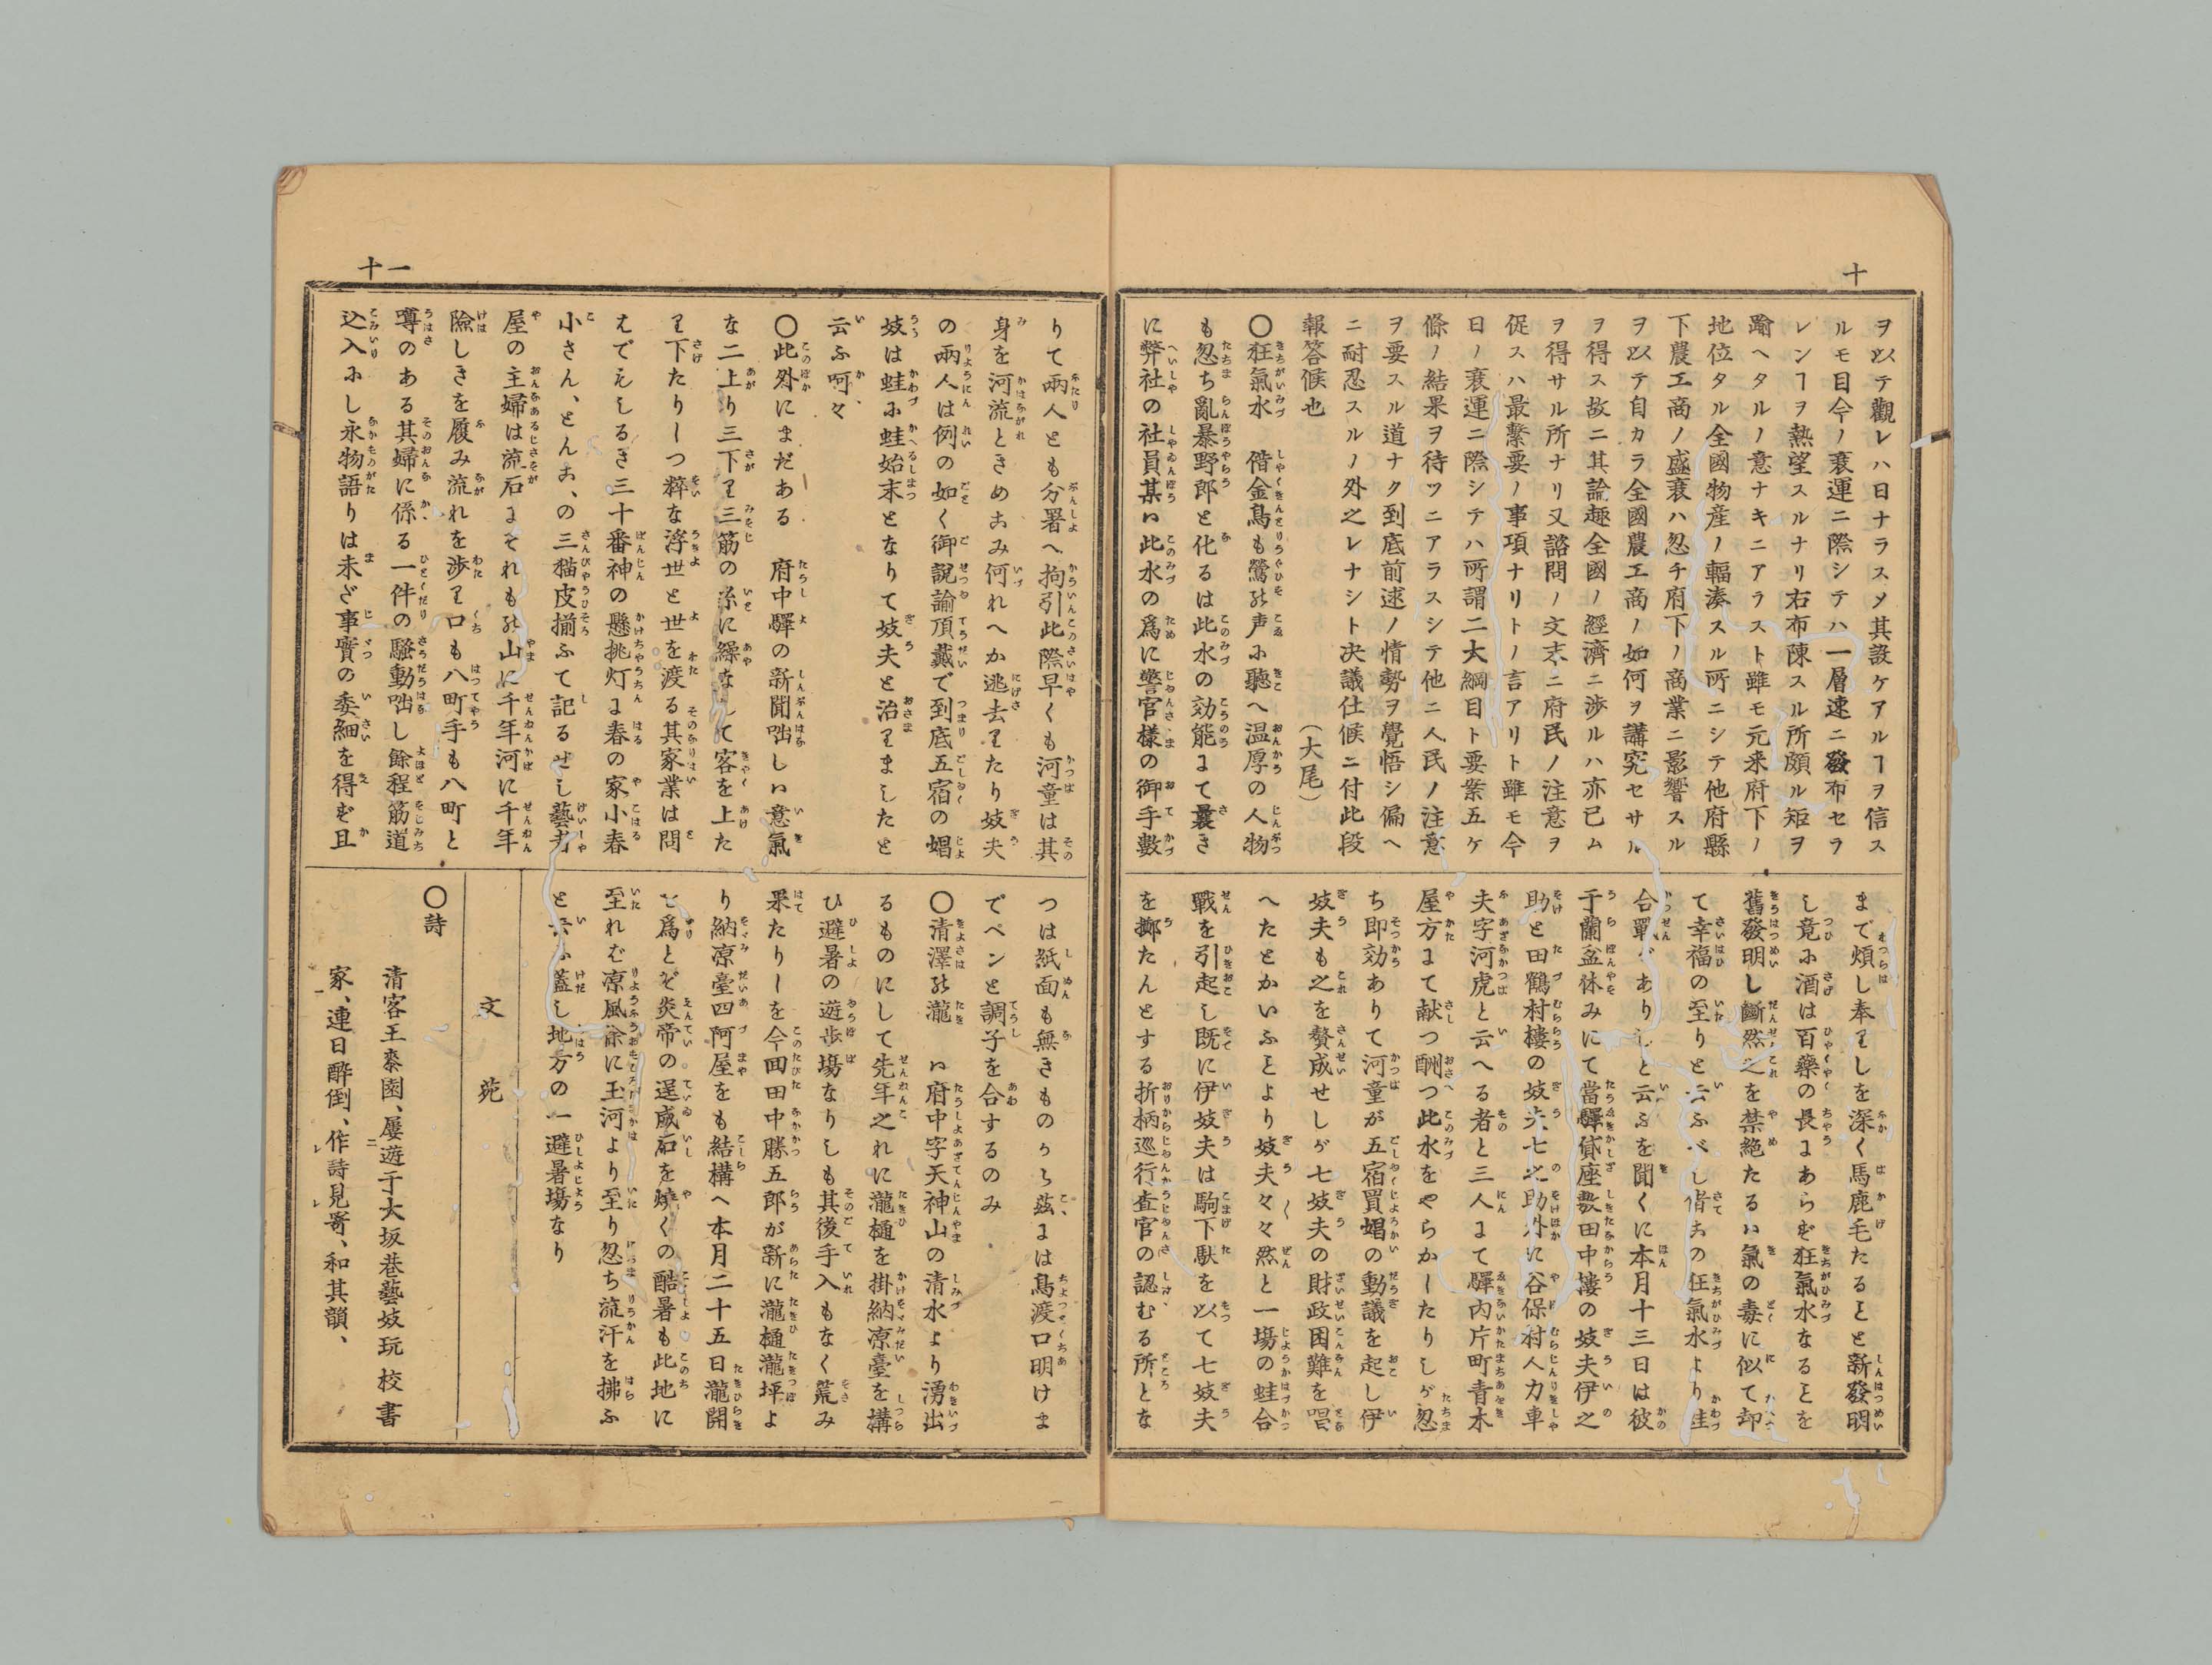 十
ヲ以テ觀レハ日ナラスメ其設ケアルヿヲ信ス
ルモ目今ノ衰運ニ際シテハ一層速ニ發布セラ
レンヿヲ熱望スルナリ右布陳スル所頗ル矩ヲ
踰ヘタルノ意ナキニアラスト雖モ元来府下ノ
地位タル全國物産ノ輻湊スル所ニシテ他府縣
下農工商ノ盛衰ハ忽チ府下ノ商業ニ影響スル
ヲ以テ自カラ全國農工商ノ如何ヲ講究セサル
ヲ得ス故ニ其論趣全國ノ經濟ニ渉ルハ亦已ム
ヲ得サル所ナリ又諮問ノ文末ニ府民ノ注意ヲ
促スハ最繫要ノ事項ナリトノ言アリト雖モ今
日ノ衰運ニ際シテハ所謂二大綱目ト要案五ケ
條ノ結果ヲ待ツニアラスシテ他ニ人民ノ注意
ヲ要スル道ナク到底前途ノ情勢ヲ覺悟シ偏ヘ
ニ耐忍スルノ外之レナシト决議仕候ニ付此段
報答候也　（大尾）
〇狂氣水　偕金鳥も鶯の声に聽へ温厚の人物
も忽ち亂暴野郎と化るは此水の効能にて曩き
に弊社の社員某ハ此水の爲に警官様の御手數
まで煩し奉りしを深く馬鹿毛たることと新發明
し竟に酒は百藥の長にあらず狂氣水なることを
舊發明し斷然之を禁絶たるハ氣の毒に似て却
て幸福の至りと云ふべし偕この狂氣水より蛙
合戰がありしと云ふを聞くに本月十三日は彼
于蘭盆休みにて當驛貸座敷田中樓の妓夫伊之
助と田鶴村樓の妓夫七之助外に谷保村人力車
夫字河虎と云へる者と三人にて驛内片町青木
屋方にて献つ酬つ此水をやらかしたりしが忽
ち即効ありて河童が五宿買娼の動議を起し伊
妓夫も之を賛成せしが七妓夫の財政困難を唱
へたとかいふことより妓夫々々然と一塲の蛙合
戰を引起し既に伊妓夫は駒下駄を以て七妓夫
を擲たんとする折柄巡行査官の認むる所とな
十一
りて兩人とも分署へ拘引此際早くも河童は其
身を河流ときめこみ何れへか逃去りたり妓夫
の兩人は例の如く御説諭頂戴で到底五宿の娼
妓は蛙に蛙始末となりて妓夫と治りましたと
云ふ呵々
〇此外にまだある　府中驛の新聞咄しハ意氣
な二上り三下り三筋の糸に繰なして客を上た
り下たりしつ粹な浮世と世を渡る其家業は問
はでもしるき三十番神の懸挑灯に春の家小春
小さん、とんこ、の三猫皮揃ふて記るせし藝者
屋の主婦は流石にそれもの山に千年河に千年
險しきを履み流れを渉り口も八町手も八町と
噂のある其婦に係る一件の騷動咄し餘程筋道
込入にし永物語りは未ざ事實の委細を得ず且
つは紙面も無きものから茲には鳥渡口明けま
でペンと調子を合するのみ
〇清澤の瀧　ハ府中字天神山の清水より湧出
るものにして先年之れに瀧樋を掛納凉臺を搆
ひ避暑の遊歩塲なりしも其後手入もなく荒み
果たりしを今回田中勝五郎が新に瀧樋瀧坪よ
り納凉臺四阿屋をも結構へ本月二十五日瀧開
を爲とぞ炎帝の逞威石を燒くの酷暑も此地に
至れば凉風徐に玉河より至り忽ち流汗を拂ふ
と云ふ蓋し地方の一避暑塲なり
文苑
〇詩
清客王桼園、屢遊于大坂巷藝妓玩校書
家、連日醉倒、作詩見寄、和其韻、